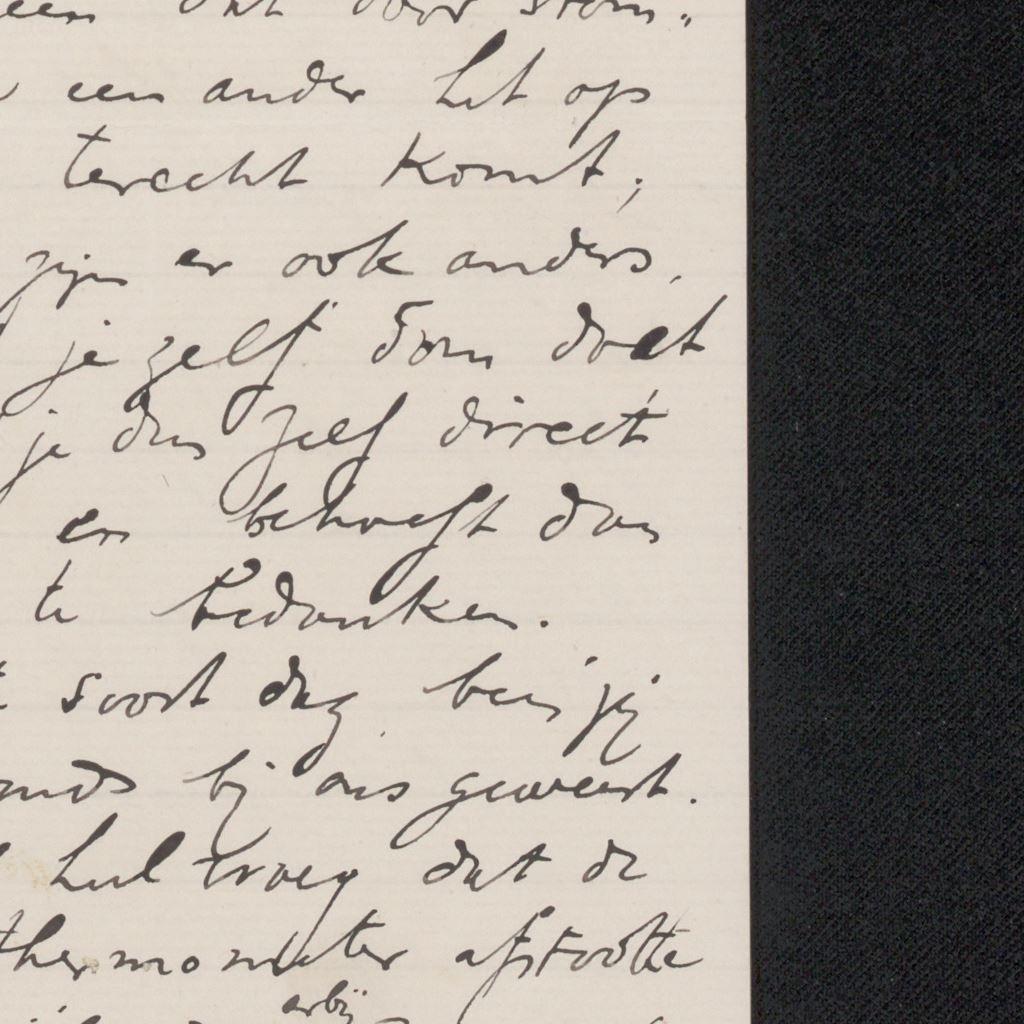 een dat door stom-
een ander het op
terecht komt;
zijn er ook anders,
je zelf dom doet
je dus zelf direct
en behoeft dan
te bedanken.
soort dag ben jij
bij ons geweest.
heel vroeg dat de
thermometer afstootte
erbij